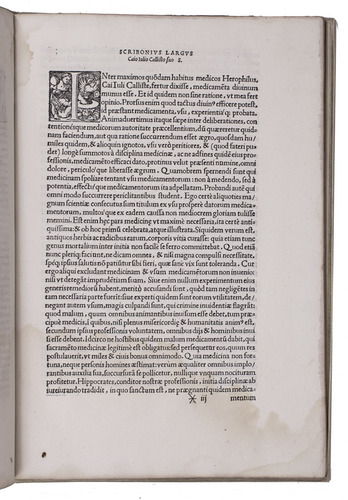 SCRIBONIVS LARGVS
Caio Iulio Callisto suo S.
INter maximos quõdam habitus medicos Herophilus,
Cai Iuli Calliste, fertur dixisse, medicamẽta diuinum
munus esse. Et id quidem non sine ratione, vt mea fert
opinio. Prorsus enim quod tactus diuinꝰ efficere potest,
id præstant medicamenta, vsu, experientiaqꝫ probata.
Animaduertimus itaque sæpe inter deliberationes, con
tentiõesque medicorum autoritate præcellentium, dũ quæreretur quid
faciendum, aut qua ratione succurrendum esset ægro, quosdam hu/
miles quidem, & alioquin ignotos, vsu vero peritiores, & (quod fateri pu/
det) longe summotos à disciplina medicinæ, ac ne adfines quidẽ eius pro/
fessionis, medicamẽto efficaci dato, protinus velut præsenti numine, omni
dolore, periculoqꝫ liberasse ægrum. Quamobrem spernendi sunt qui
medicinam spoliare tentant vsu medicamentorum: non à medendo, sed à
potentia, effectuqꝫ medicamentorum ita adpellatam. Probandi autẽ qui
omni modo succurrere periclitantibus student. Ego certè aliquoties ma/
gnum scientiæ consecutus sum titulum ex vsu prosperè datorum medica
mentorum, multosqꝫ ob eandem caussam non mediocrem gloriam tulisse
memini. Est enim hęc pars medicinę vt maximè necessaria, ita certè anti/
quissima: & ob hoc primũ celebrata, atque illustrata. Siquidem verum est,
antiquos herbis ac radicibus earum, corporis vitia curasse: quia etiam tunc
genus mortalium inter initia non facilè se ferro committebat. Quod etiã
nunc pleriqꝫ faciunt, ne dicam omnes, & nisi magna compulsi necessitate,
spéqꝫ ipsius salutis nõ patiũtur sibi fieri, quæ sanè vix sunt toleranda. Cur
ergo aliqui excludant medicinam & vsum medicamẽtorum non inuenio:
nisi vt detegãt imprudẽtiam suam. Siue enim nullum experimentum eius
generis remediorũ habent, meritò accusandi sunt, quòd tam negligẽtes in
tam necessaria parte fuerint: siue experti quidem sunt eorum vtilitatem, de/
negant autem vsum, magis culpandi sunt, qui crimine inuidentiæ flagrãt:
quod malum, quum omnibus animantibus inuisum esse debet, tum præ/
cipuè medicis, in quibus, nisi plenus misericordię & humanitatis animꝰ est,
secundum ipsius professionis voluntatem, omnibus dijs & hominibus inui
si esse debent. Idcirco ne hostibus quidem malum medicamentũ dabit, qui
sacramẽto medicinæ legitimè est obligatus: sed persequetur eos, quum res
postulauerit, vt miles & ciuis bonus omnimodo. Quia medicina non for
tuna, neque personis homines æstimat: verùm æqualiter omnibus implo/
rantibus auxilia sua, succursurã se pollicetur, nullique vnquam nocituram
profitetur. Hippocrates, conditor nostræ professionis, initia disciplinæ ab
iureiurando tradidit, in quo sanctum est, ne prægnanti quidem medica/
* iij mentum